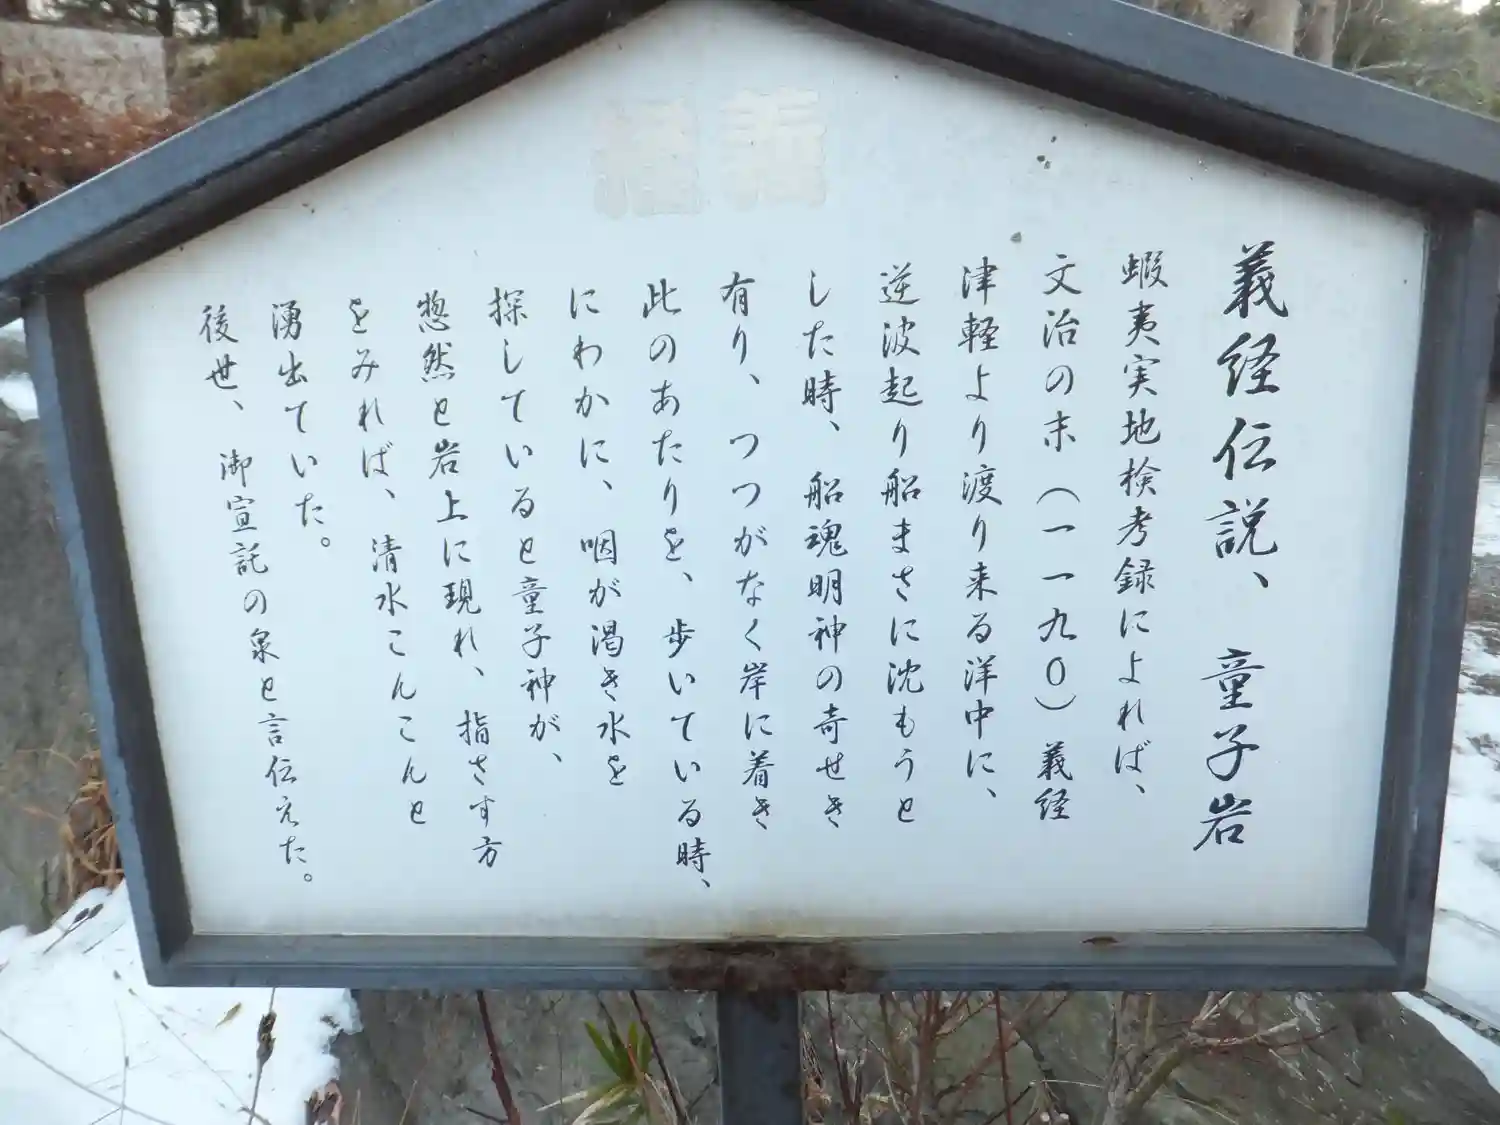 義経伝説、童子岩
蝦夷実地検考録によれば、
文治の末(一一九0)義経
津軽より渡り来る洋中に、
逆波起り船まさに沈もうと
した時、船魂明神の奇せき
有り、つつがなく岸に着き
此のあたりを、歩いている時、
にわかに、咽が渇き水を
探していると童子神が、
惣然と岩上に現れ、指さす方
をみれば、清水こんこんと
湧出ていた。
後世、御宣託の泉と言伝えた。